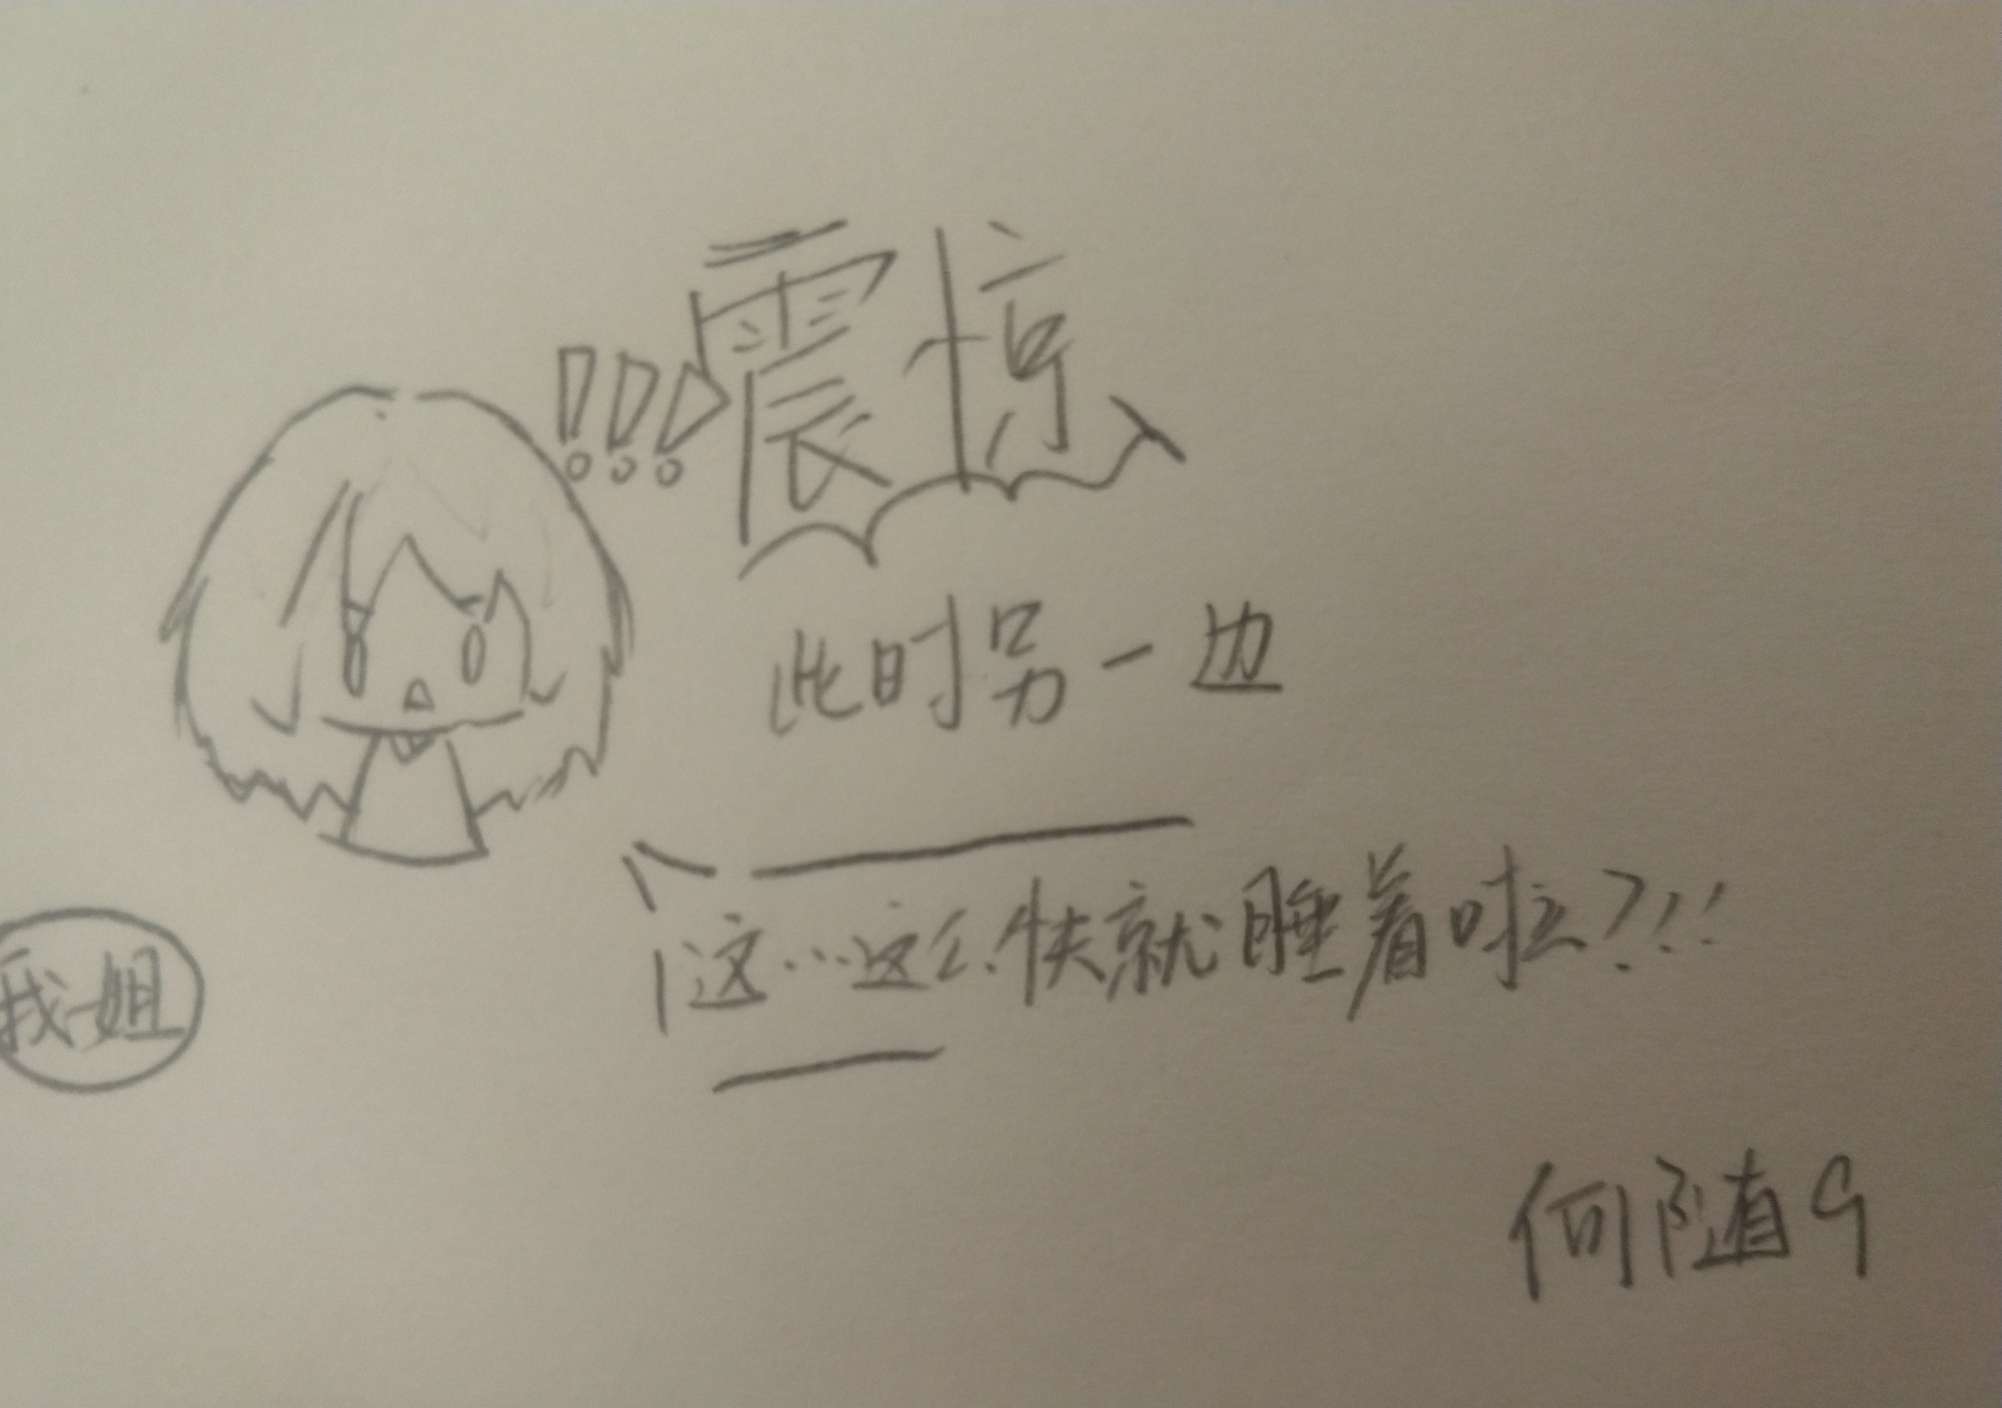 !!!震惊
此时另一边
这…这么快就睡着啦?!!
我姐
何随9